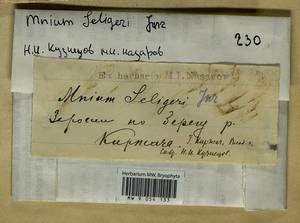 Mnium Seligeri Jur
Н.И. Кузнецов М.И. Назаров
230
Ex herbario M. I. Nasarow
Mnium Seligeri Jur
Заросли по берегу р.
Киржача. Г. Киржач,
Собр. Н. И. Кузнецов.
Herbarium MW, Bryophyta
MW 9 054 133